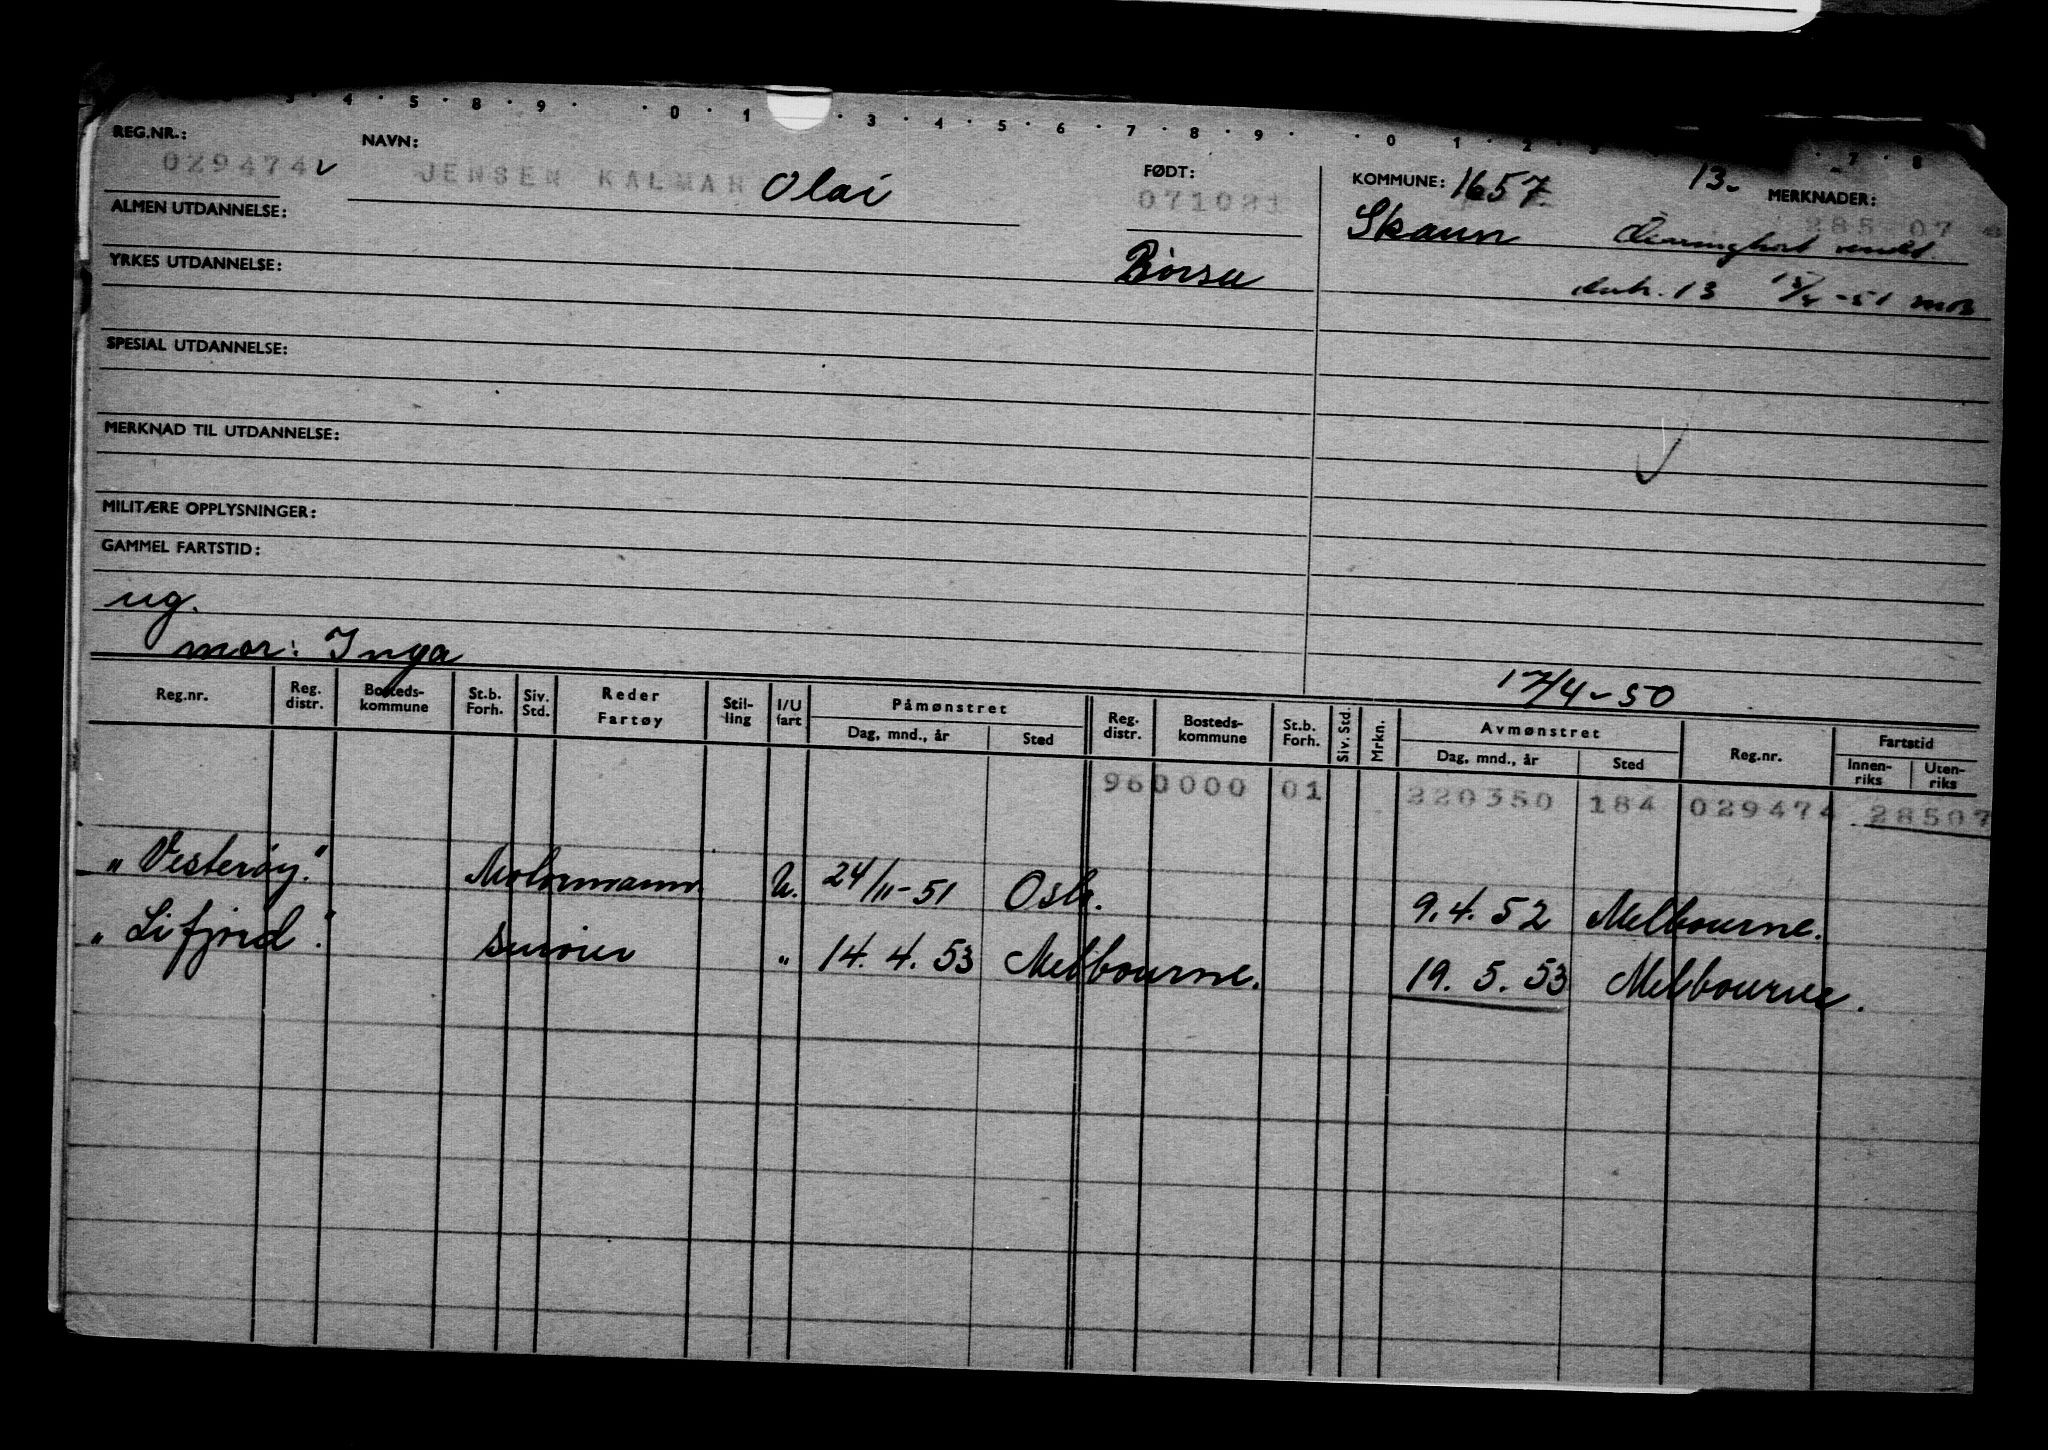 4 · 5 · 8 · 9 · · 0 · 1 · 3 · 4 · 5 · 6 · 7 · 8 · 9 · · 0 · 1 · 2 · 7 · 8
REG.NR.: NAVN: FØDT: KOMMUNE: 1657. 13. MERKNADER:
029474 JENSEN KALMAR Olai 071021 Skaun 28507
ALMEN UTDANNELSE: sendt
Børsa 13 -51
YRKES UTDANNELSE:
SPESIAL UTDANNELSE:
MERKNAD TIL UTDANNELSE:
MILITÆRE OPPLYSNINGER:
GAMMEL FARTSTID:
ug.
mor: Inga
17/4-50
Reg.nr. Reg. distr. Bosteds-kommune St.b. Forh. Siv. Std. Reder Fartøy Stil-ling I/U fart Påmønstret Dag, mnd., år Sted Reg. distr. Bosteds-kommune St.b. Forh. Siv. Std. Mrkn. Avmønstret Dag, mnd., år Sted Reg.nr. Fartstid Innen-riks Uten-riks
960000 01 220350 184 029474 28507
"Vesterøy." Motormann U. 24/11-51 Oslo. 9.4.52 Melbourne.
"Lifjord." smører " 14.4.53 Melbourne. 19.5.53 Melbourne.